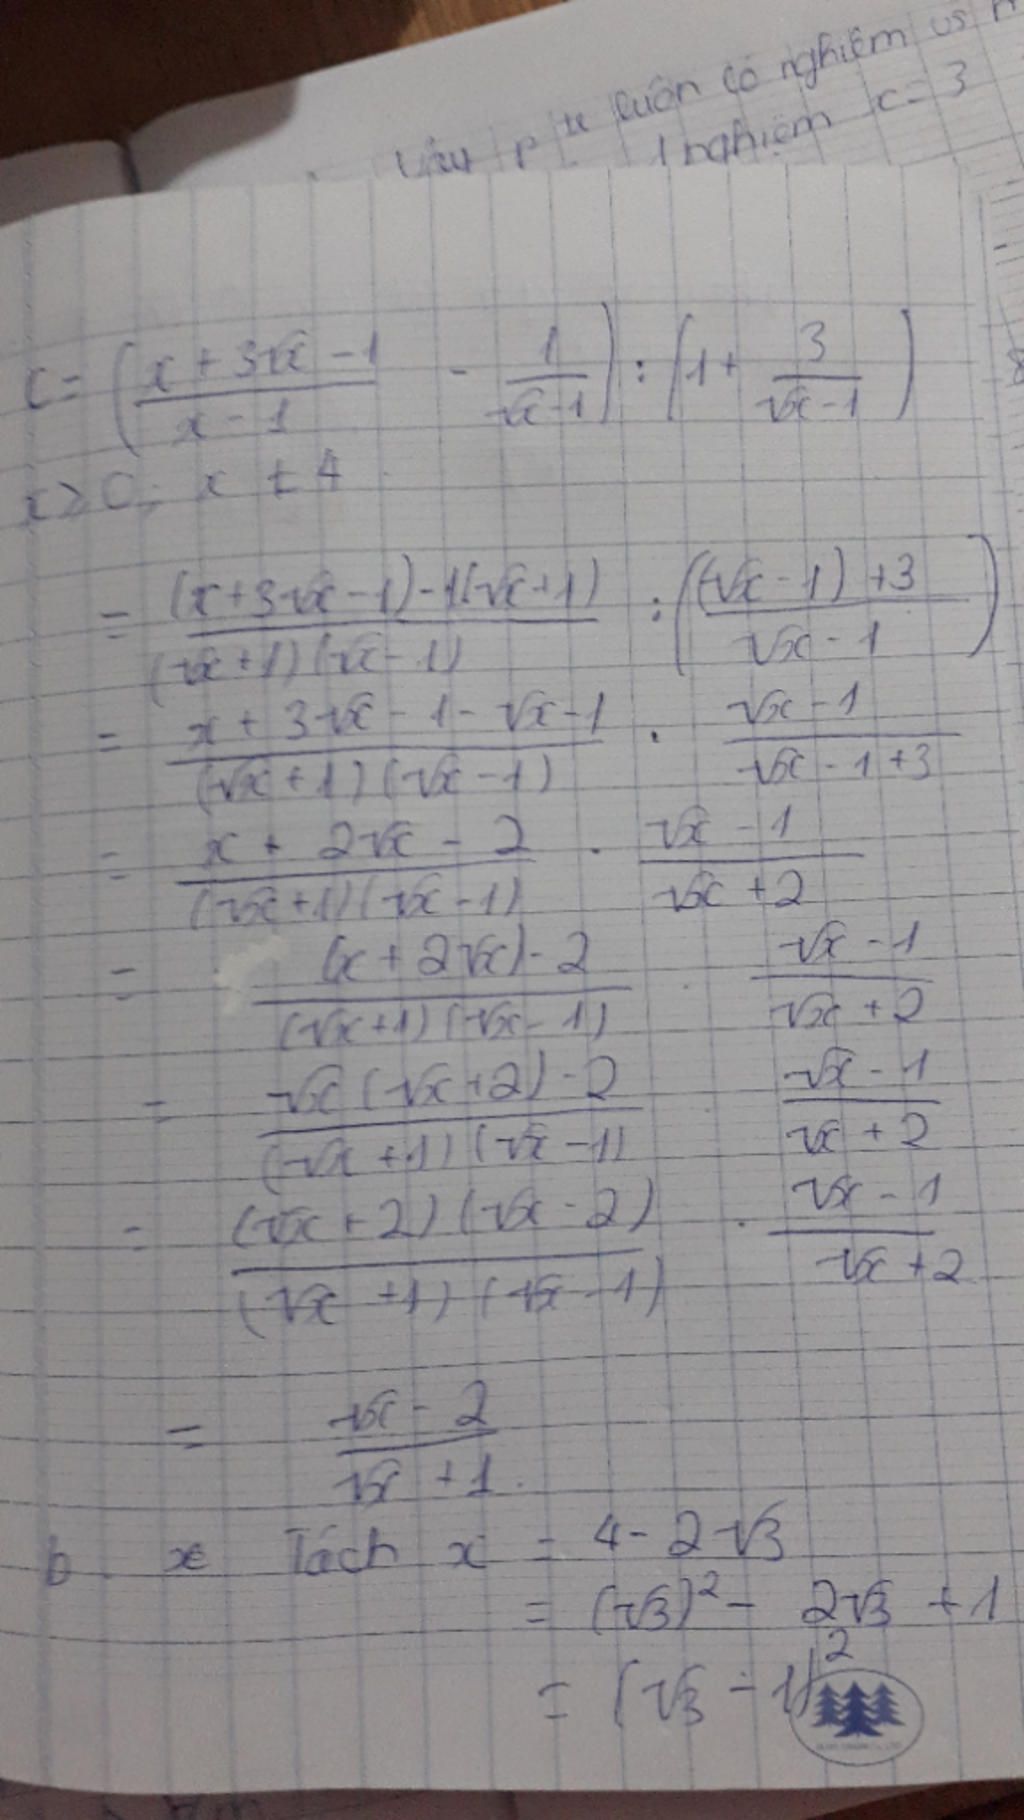 luôn có nghiệm vs
1 nghiệm x = 3
C = ( (x + 3√x - 1)/(x - 1) - 1/(√x - 1) ) : ( 1 + 3/(√x - 1) )
x ≥ 0; x ≠ 4
= ((x + 3√x - 1) - 1(√x + 1))/((√x + 1)(√x - 1)) : ( ((√x - 1) + 3)/(√x - 1) )
= (x + 3√x - 1 - √x - 1)/((√x + 1)(√x - 1)) . (√x - 1)/(√x - 1 + 3)
= (x + 2√x - 2)/((√x + 1)(√x - 1)) . (√x - 1)/(√x + 2)
= ((x + 2√x) - 2)/((√x + 1)(√x - 1)) . (√x - 1)/(√x + 2)
= (√x(√x + 2) - 2)/((√x + 1)(√x - 1)) . (√x - 1)/(√x + 2)
= ((√x + 2)(√x - 2))/((√x + 1)(√x - 1)) . (√x - 1)/(√x + 2)
= (√x - 2)/(√x + 1).
b. x Tách x = 4 - 2√3
= (√3)² - 2√3 + 1
= (√3 - 1)²